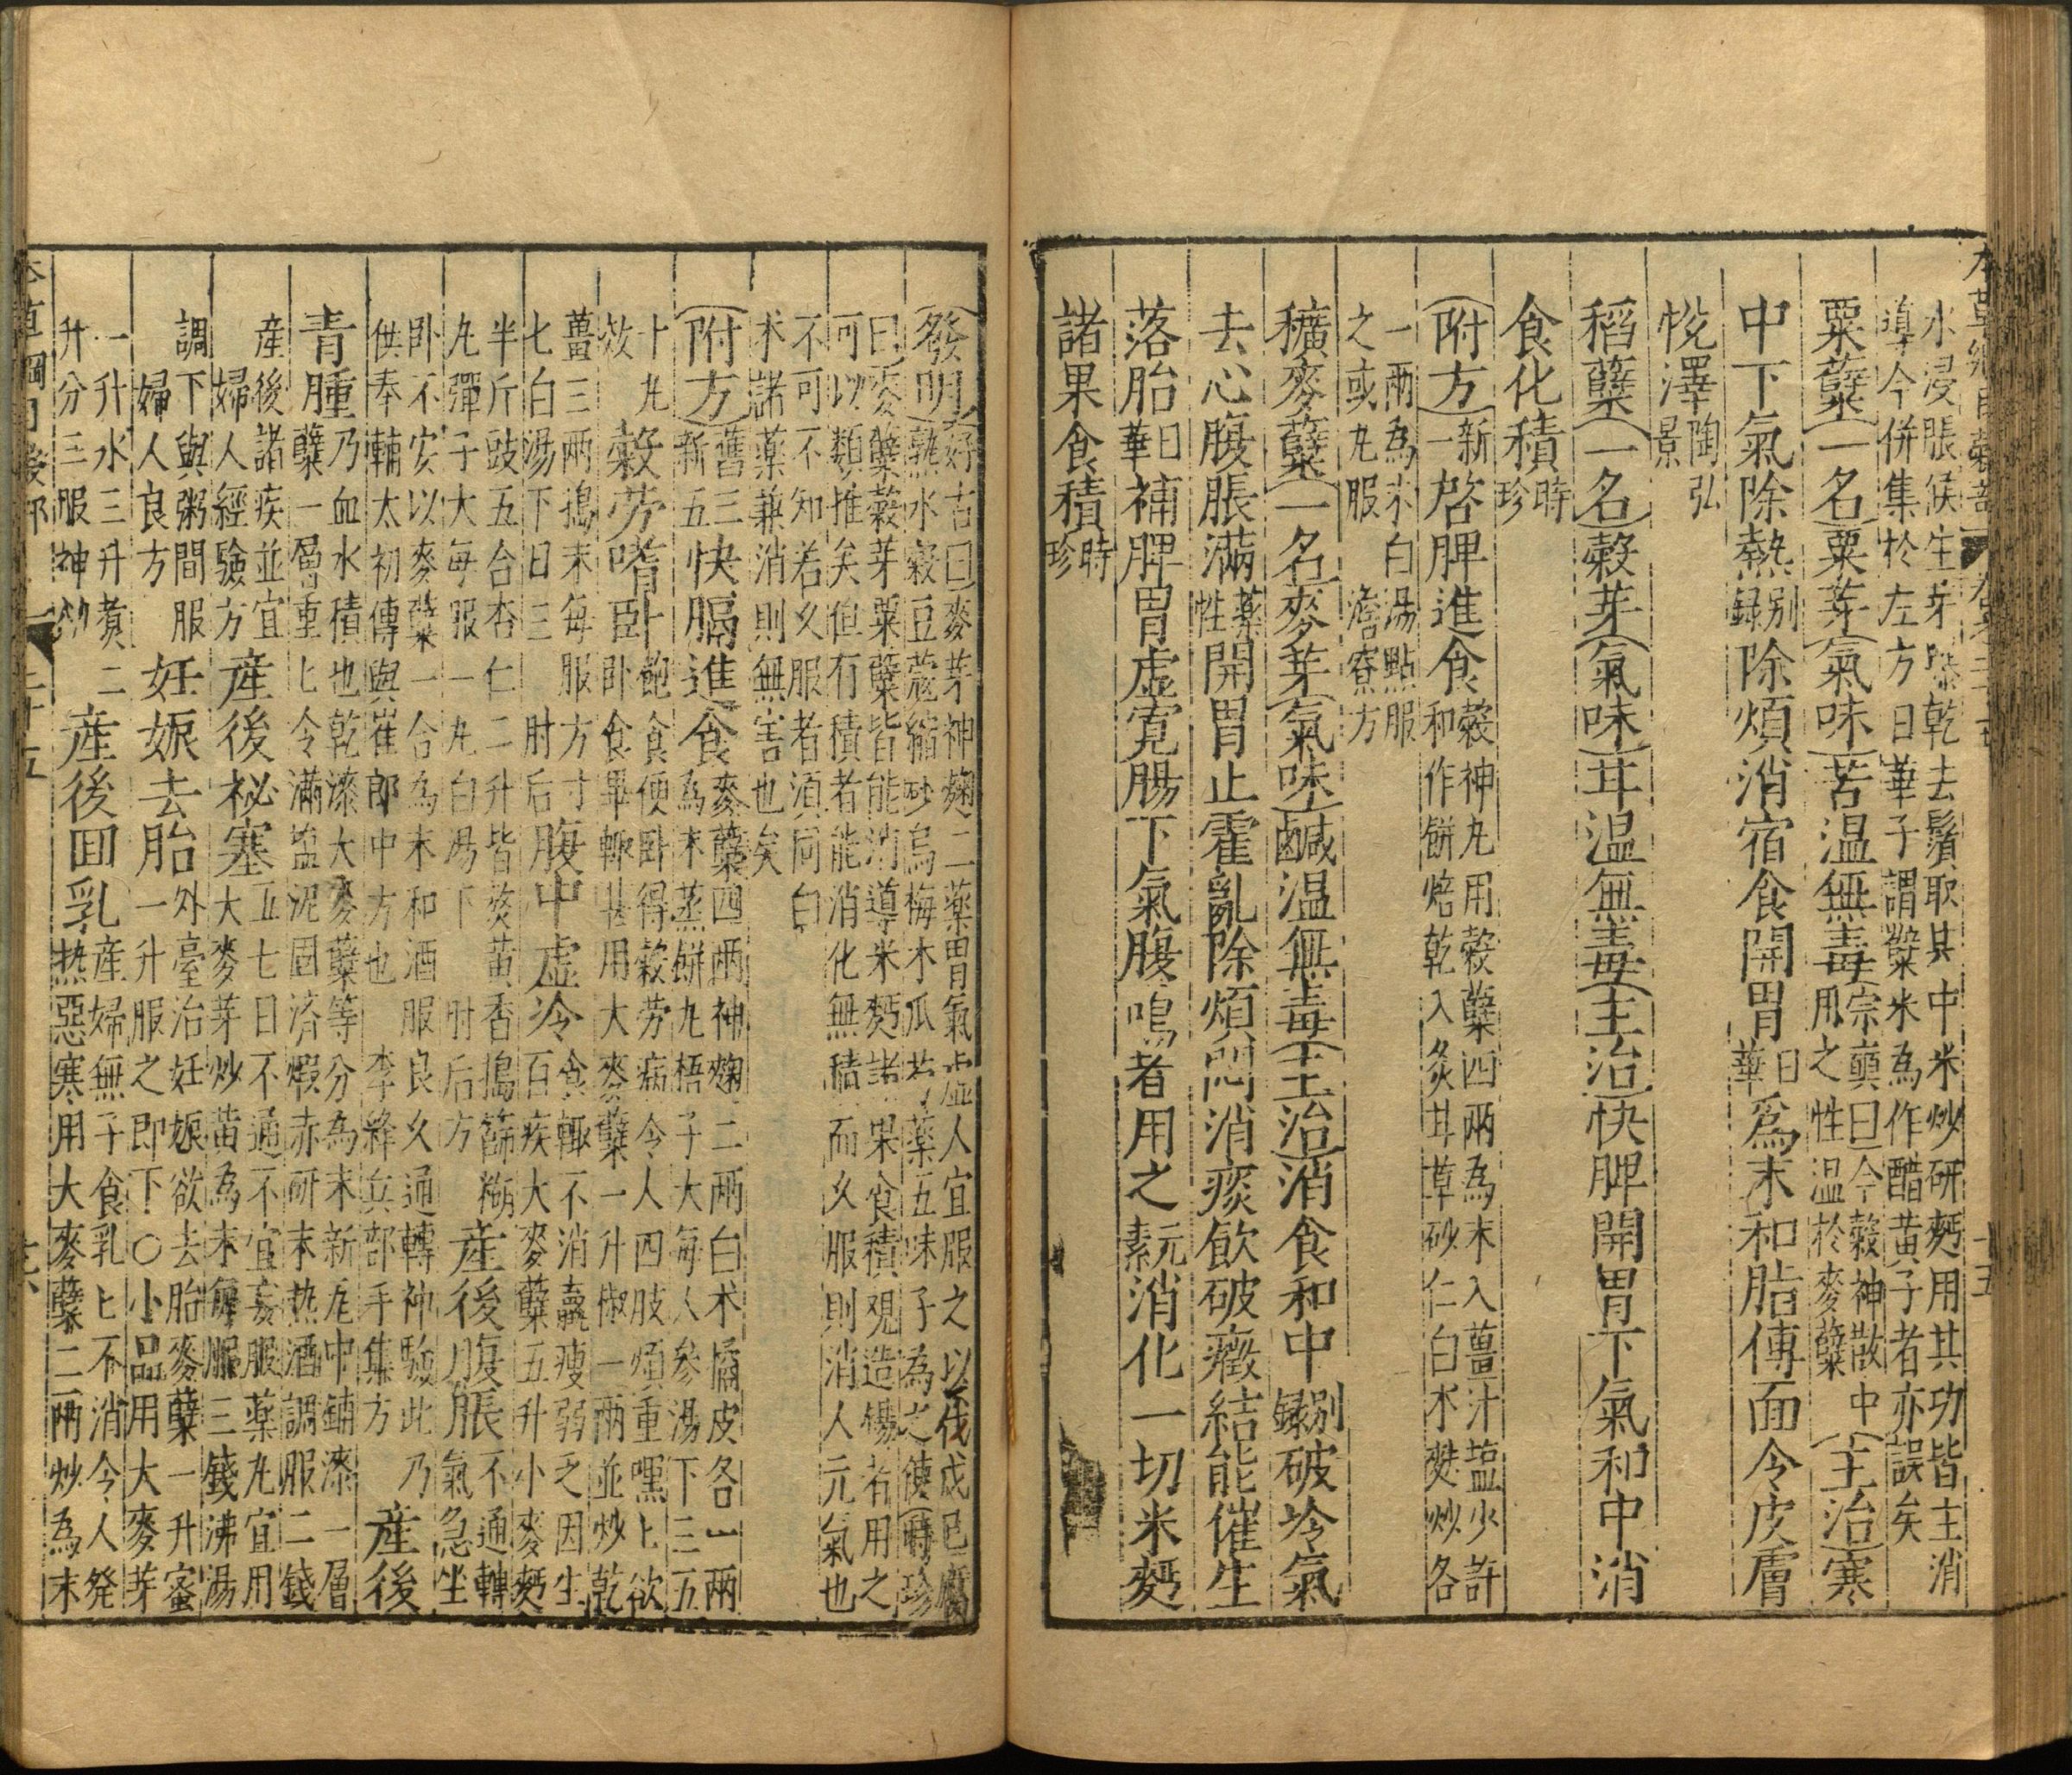 水浸脹候生芽曝乾去鬚取其中米炒研麪用其功皆主消
導今併集於左方日華子謂糵米為作醋黄子者亦誤矣
粟糵一名粟芽氣味苦温無毒宗奭曰今穀神散中用之性温於麥糵主治寒
中下氣除熱别録除煩消宿食開胃日華為末和脂傅面令皮膚
悅澤陶弘景
稻糵一名穀芽氣味甘温無毒主治快脾開胃下氣和中消
食化積時珍
附方新一啓脾進食穀神丸用穀糵四兩為末入薑汁塩少許和作餅焙乾入炙甘草砂仁白术麩炒各
一兩為末白湯點服之或丸服澹寮方
穬麥糵一名麥芽氣味鹹温無毒主治消食和中别録破冷氣
去心腹脹滿藥性開胃止霍亂除煩悶消痰飲破癥結能催生
落胎日華補脾胃虚寛腸下氣腹鳴者用之元素消化一切米麪
諸果食積時珍
發明好古曰麥芽神麹二藥胃氣虚人宜服之以伐戊己腐熟水穀豆蔻縮砂烏梅木瓜芍藥五味子為之使時珍
曰麥糵穀芽粟糵皆能消導米麪諸果食積觀造餳者用之可以類推矣但有積者能消化無積而久服則消人元氣也
不可不知若久服者須同白术諸藥兼消則無害也矣
附方舊三新五快膈進食麥糵四兩神麹二兩白术橘皮各一兩為末蒸餅丸梧子大每人參湯下三五
十丸效穀勞嗜卧飽食便卧得穀勞病令人四肢煩重嘿上欲卧食畢輒甚用大麥糵一升椒一兩並炒乾
薑三兩搗末每服方寸七白湯下日三肘后腹中虚冷食輒不消羸瘦弱乏因生百疾大麥糵五升小麥麪
半斤豉五合杏仁二升皆熬黄香搗篩糊丸彈子大每服一丸白湯下肘后方產後腹脹不通轉氣急坐
卧不安以麥糵一合為末和酒服良久通轉神驗此乃供奉輔太初傳與崔郎中方也李絳兵部手集方產後
青腫乃血水積也乾漆大麥糵等分為末新瓦中鋪漆一層糵一層重匕令滿塩泥固濟煅赤研末热酒調服二錢
產後諸疾並宜婦人經驗方產後祕塞五七日不通不宜妄服藥丸宜用大麥芽炒黄為末每服三錢沸湯
調下與粥間服婦人良方妊娠去胎外臺治妊娠欲去胎麥糵一升蜜一升服之即下○小品用大麥芽
一升水三升煮二升分三服神效產後回乳產婦無子食乳匕不消令人発热惡寒用大麥糵二兩炒為末